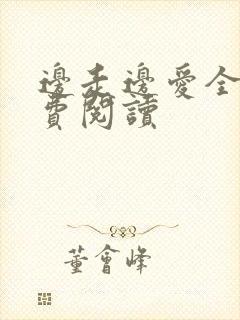 邊走邊愛全
費閱讀
董會峰